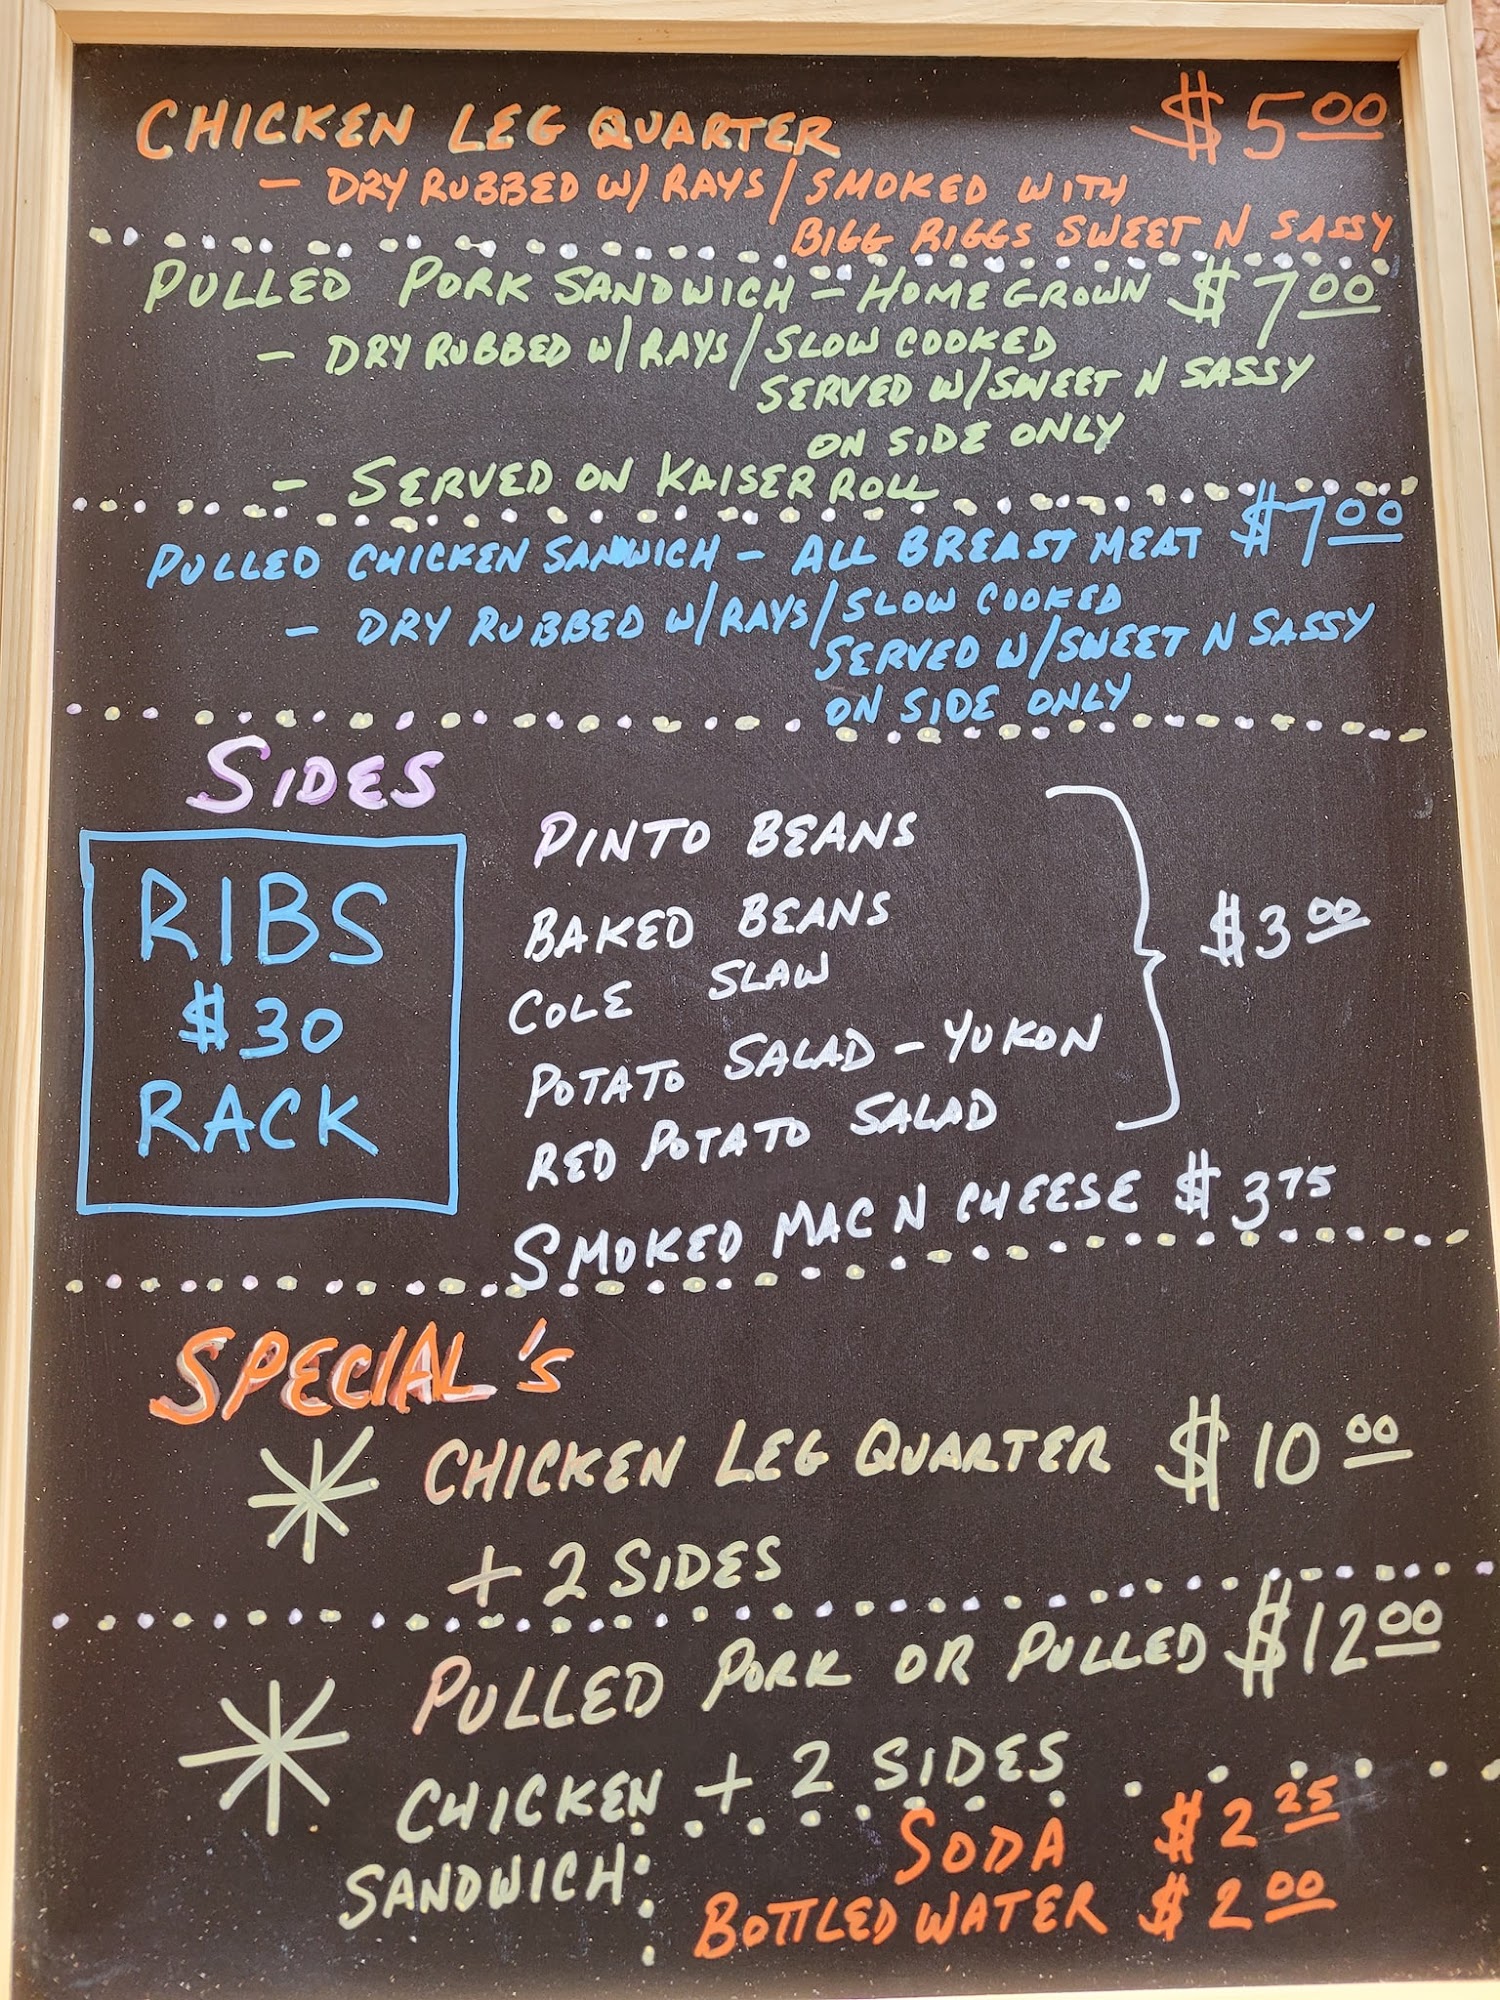 CHICKEN LEG QUARTER $5.00
- DRY RUBBED W/ RAYS / SMOKED WITH
BIGG RIGGS SWEET N SASSY
PULLED PORK SANDWICH - HOME GROWN $7.00
- DRY RUBBED W/ RAYS / SLOW COOKED
SERVED W/ SWEET N SASSY
ON SIDE ONLY
- SERVED ON KAISER ROLL
PULLED CHICKEN SANDWICH - ALL BREAST MEAT $7.00
- DRY RUBBED W/ RAYS / SLOW COOKED
SERVED W/ SWEET N SASSY
ON SIDE ONLY
SIDES
RIBS
$30
RACK
PINTO BEANS
BAKED BEANS
COLE SLAW
POTATO SALAD - YUKON
RED POTATO SALAD
$3.00
SMOKED MAC N CHEESE $3.75
SPECIAL'S
CHICKEN LEG QUARTER $10.00
+ 2 SIDES
PULLED PORK OR PULLED $12.00
CHICKEN + 2 SIDES
SANDWICH
SODA $2.25
BOTTLED WATER $2.00